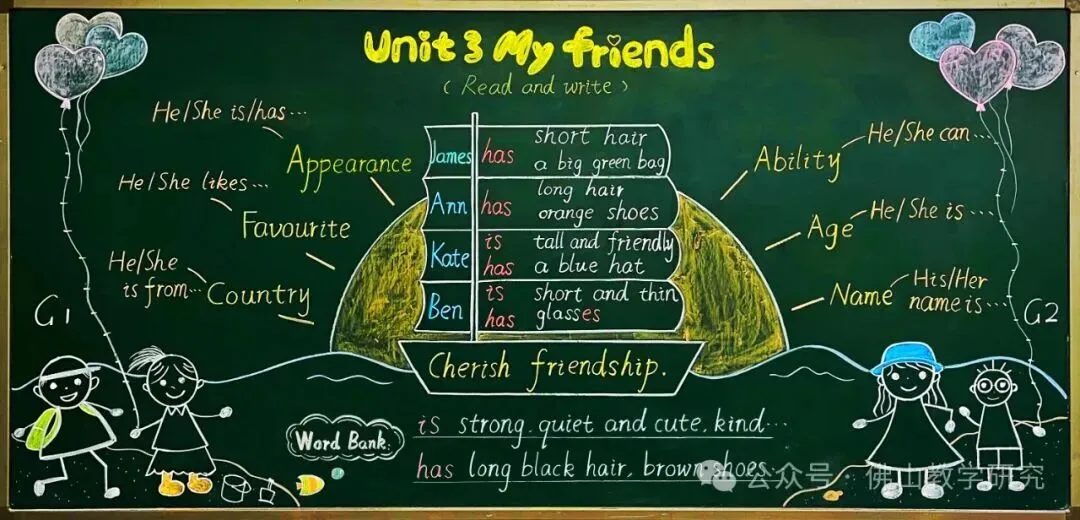 Unit 3 My friends
(Read and write)
He/She is/has...
Appearance
He/She likes...
Favourite
He/She
is from...
Country
G1
James has short hair
a big green bag
Ann has long hair
orange shoes
Kate is tall and friendly
has a blue hat
Ben is short and thin
has glasses
Cherish friendship.
Ability
He/She can...
Age
He/She is...
Name
His/Her
name is...
G2
Word Bank
is strong, quiet and cute, kind...
has long black hair, brown shoes...
公众号·佛山教学研究